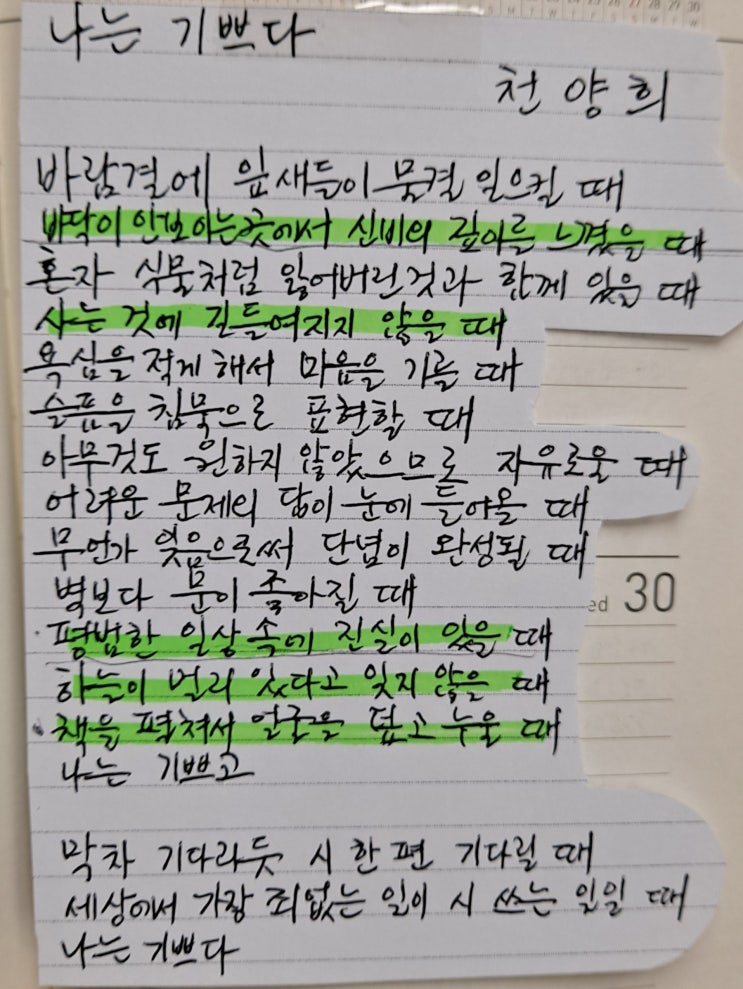 나는 기쁘다
천양희
바람결에 잎새들이 물결 일으킬 때
바닥이 안보이는 곳에서 신비의 깊이를 느꼈을 때
혼자 식물처럼 잃어버린것과 함께 있을 때
사는 것에 길들여지지 않을 때
욕심을 적게 해서 마음을 기를 때
슬픔을 침묵으로 표현할 때
아무것도 원하지 않았으므로 자유로울 때
어려운 문제의 답이 눈에 들어올 때
무언가 잊음으로써 단념이 완성될 때
벽보다 문이 좋아질 때
평범한 일상 속에 진실이 있을 때
하늘이 멀리 있다고 잊지 않을 때
책을 펼쳐서 얼굴을 덮고 누울 때
나는 기쁘고
막차 기다리듯 시 한 편 기다릴 때
세상에서 가장 죄없는 일이 시 쓰는 일일 때
나는 기쁘다
ed 30